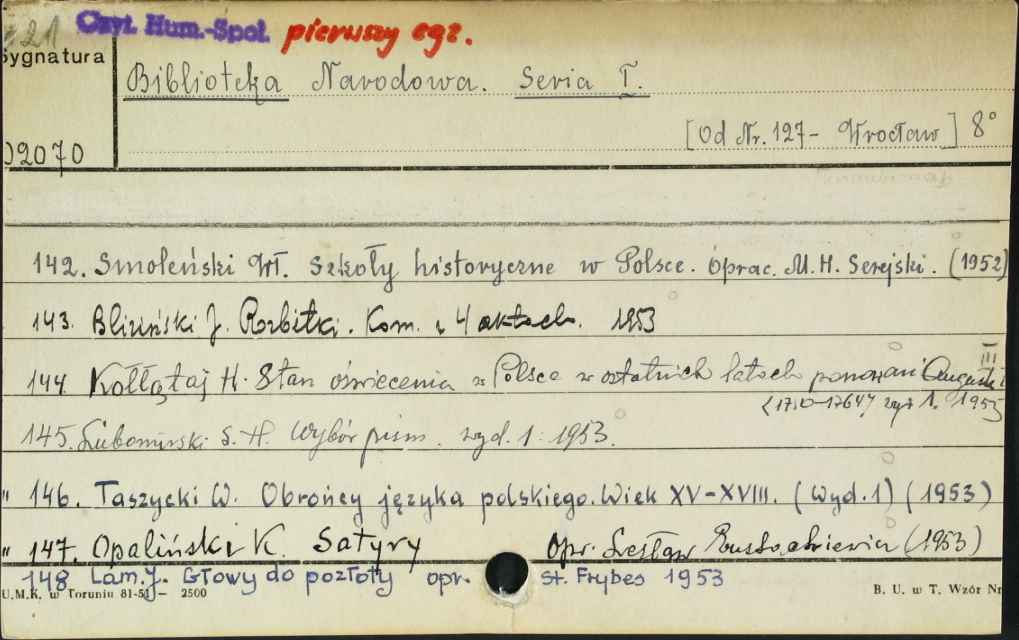 21 Czyt. Hum.-Społ. pierwszy egz.
Sygnatura
Bibljoteka Narodowa. Seria I.
[Od Nr. 127- Wrocław] 8°
02070
142. Smoleński Wł. Szkoły historyczne w Polsce. Oprac. M. H. Serejski. (1952)
143. Bliziński J. Rozbitki. Kom. w 4 aktach. 1953
144. Kołłątaj H. Stan oświecenia w Polsce w ostatnich latach panowania Augusta III
(1750-1764) wyd 1. 1953
145. Lubomirski S. H. Wybór pism. wyd. 1. 1953.
" 146. Taszycki W. Obrońcy języka polskiego. Wiek XV-XVIII. (Wyd. 1) (1953)
" 147. Opaliński K. Satyry Opr. Lesław Eustachiewicz (1953)
148 Lam. J. Głowy do pozłoty opr. St. Frybes 1953
U.M.K. w Toruniu 81-51 — 2500 B. U. w T. Wzór Nr